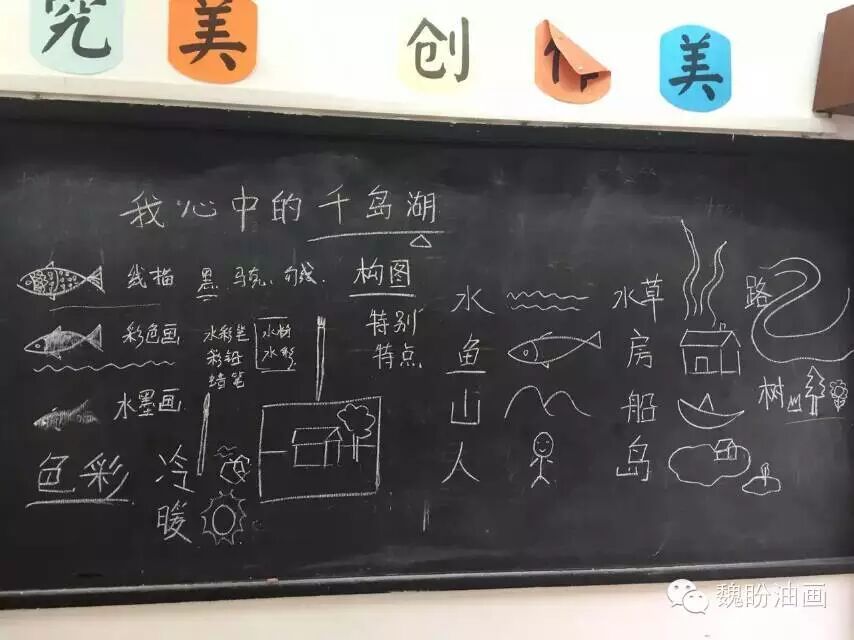 究 美 创 作 美
我心中的千岛湖
线描 黑 马克 勾线
彩色画 水彩笔 彩铅 蜡笔 水粉 水彩
水墨画
色彩 冷 暖
构图
特别
特点
水
鱼
山
人
水草
房
船
岛
路
树
魏盼油画